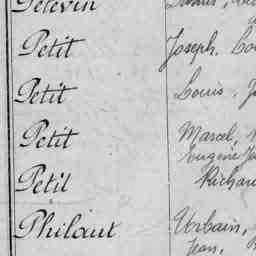 Petevin
Petit Joseph.
Petit Louis.
Petit Marcel,
Eugène
Petit Richard
Philaut Urbain,
Jean,